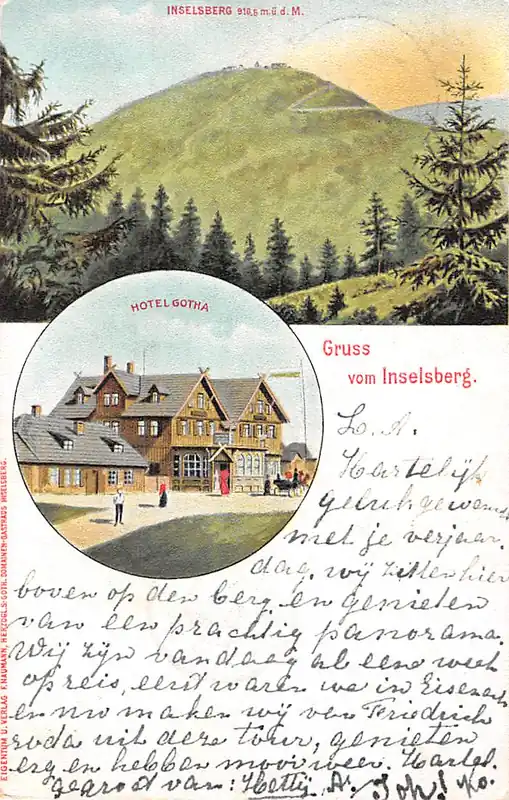 INSELSBERG 916,5 m.ü.d.M.
HOTEL GOTHA
Gruss
vom Inselsberg.
L. A.
Hartelijk
geluk gewenst
met je verjaar
dag, wij zitten hier
boven op den berg en genieten
van een prachtig panorama.
Wij zijn vandaag al eene week
op reis, eerst waren we in Eisenach
en nu maken wij van Friedrich
roda uit deze tour, genieten
erg en hebben mooi weer. Hartel.
gegroet van: Hetty, A.
EIGENTUM U. VERLAG F. NAUMANN, HERZOGLS. GOTH. DOMAINEN-GASTHAUS INSELSBERG.